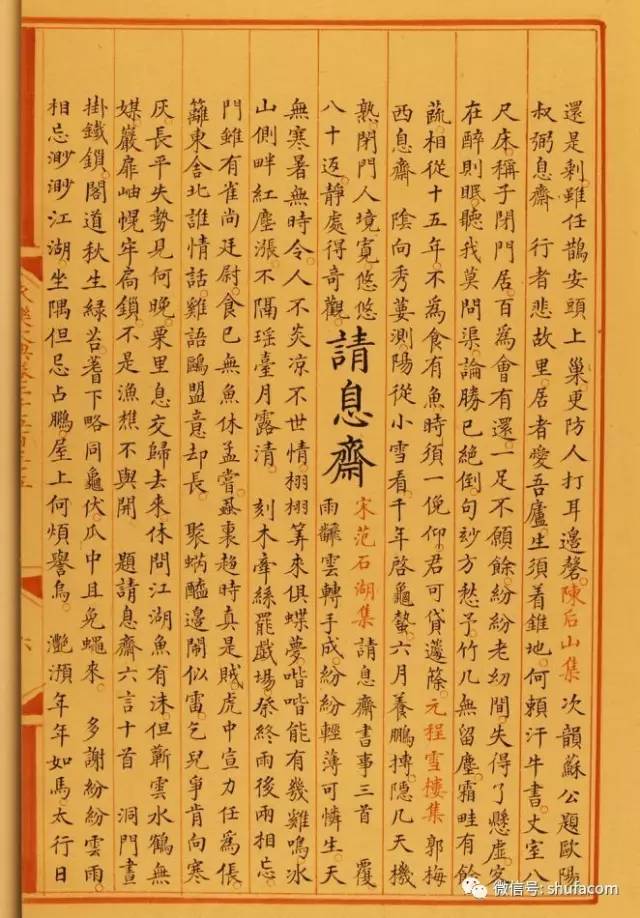 還是剩。雖任鵲安頭上巢。更防人打耳邊磬。陳后山集 次韻蘇公題歐陽
叔弼息齋 行者悲故里。居者愛吾廬。生須着錐地。何賴汗牛書。丈室八
尺床。稱子閉門居。百為會有還。一足不願餘。紛紛老幼間。失得了懸虛。客
在醉則眠。聽我莫問渠。論勝已絕倒。句妙方愁予。竹几無留塵。霜畦有餘
蔬。相從十五年。不為食有魚。時須一俛仰。君可貸蘧蒢。元程雪樓集 郭梅
西息齋 陰向秀葽測。陽從小雪看。千年啓龜蟄。六月養鵬摶。隱几天機
熟。閉門人境寬。悠悠
八十返。靜處得奇觀。
請息齋
宋范石湖集 請息齋書事三首 覆
雨飜雲轉手成。紛紛輕薄可憐生。天
無寒暑無時令。人不炎涼不世情。栩栩筭來俱蝶夢。喈喈能有幾雞鳴。冰
山側畔紅塵漲。不隔瑤臺月露清。 刻木牽絲罷戲場。祭終雨後兩相忘。
門雖有雀尚廷尉。食已無魚休孟嘗。蝨裏趨時真是賊。虎中宣力任爲倀。
籬東舍北誰情話。雞語鷗盟意却長。 聚蝸醯邊鬧似雷。乞兒爭肯向寒
灰。長平失勢見何晚。栗里息交歸去來。休問江湖魚有沫。但蘄雲水鶴無
媒。巖扉岫幌牢扃鎖。不是漁樵不與開。 題請息齋六言十首 洞門晝
掛鐵鎖。閣道秋生緑苔。蓍下略同龜伏。瓜中且免蠅來。 多謝紛紛雲雨。
相忘渺渺江湖。坐隅但忌占鵩。屋上何煩譽烏。 灔澦年年如馬。太行日
永樂大典卷二千五百三十五
六
微信号: shufacom